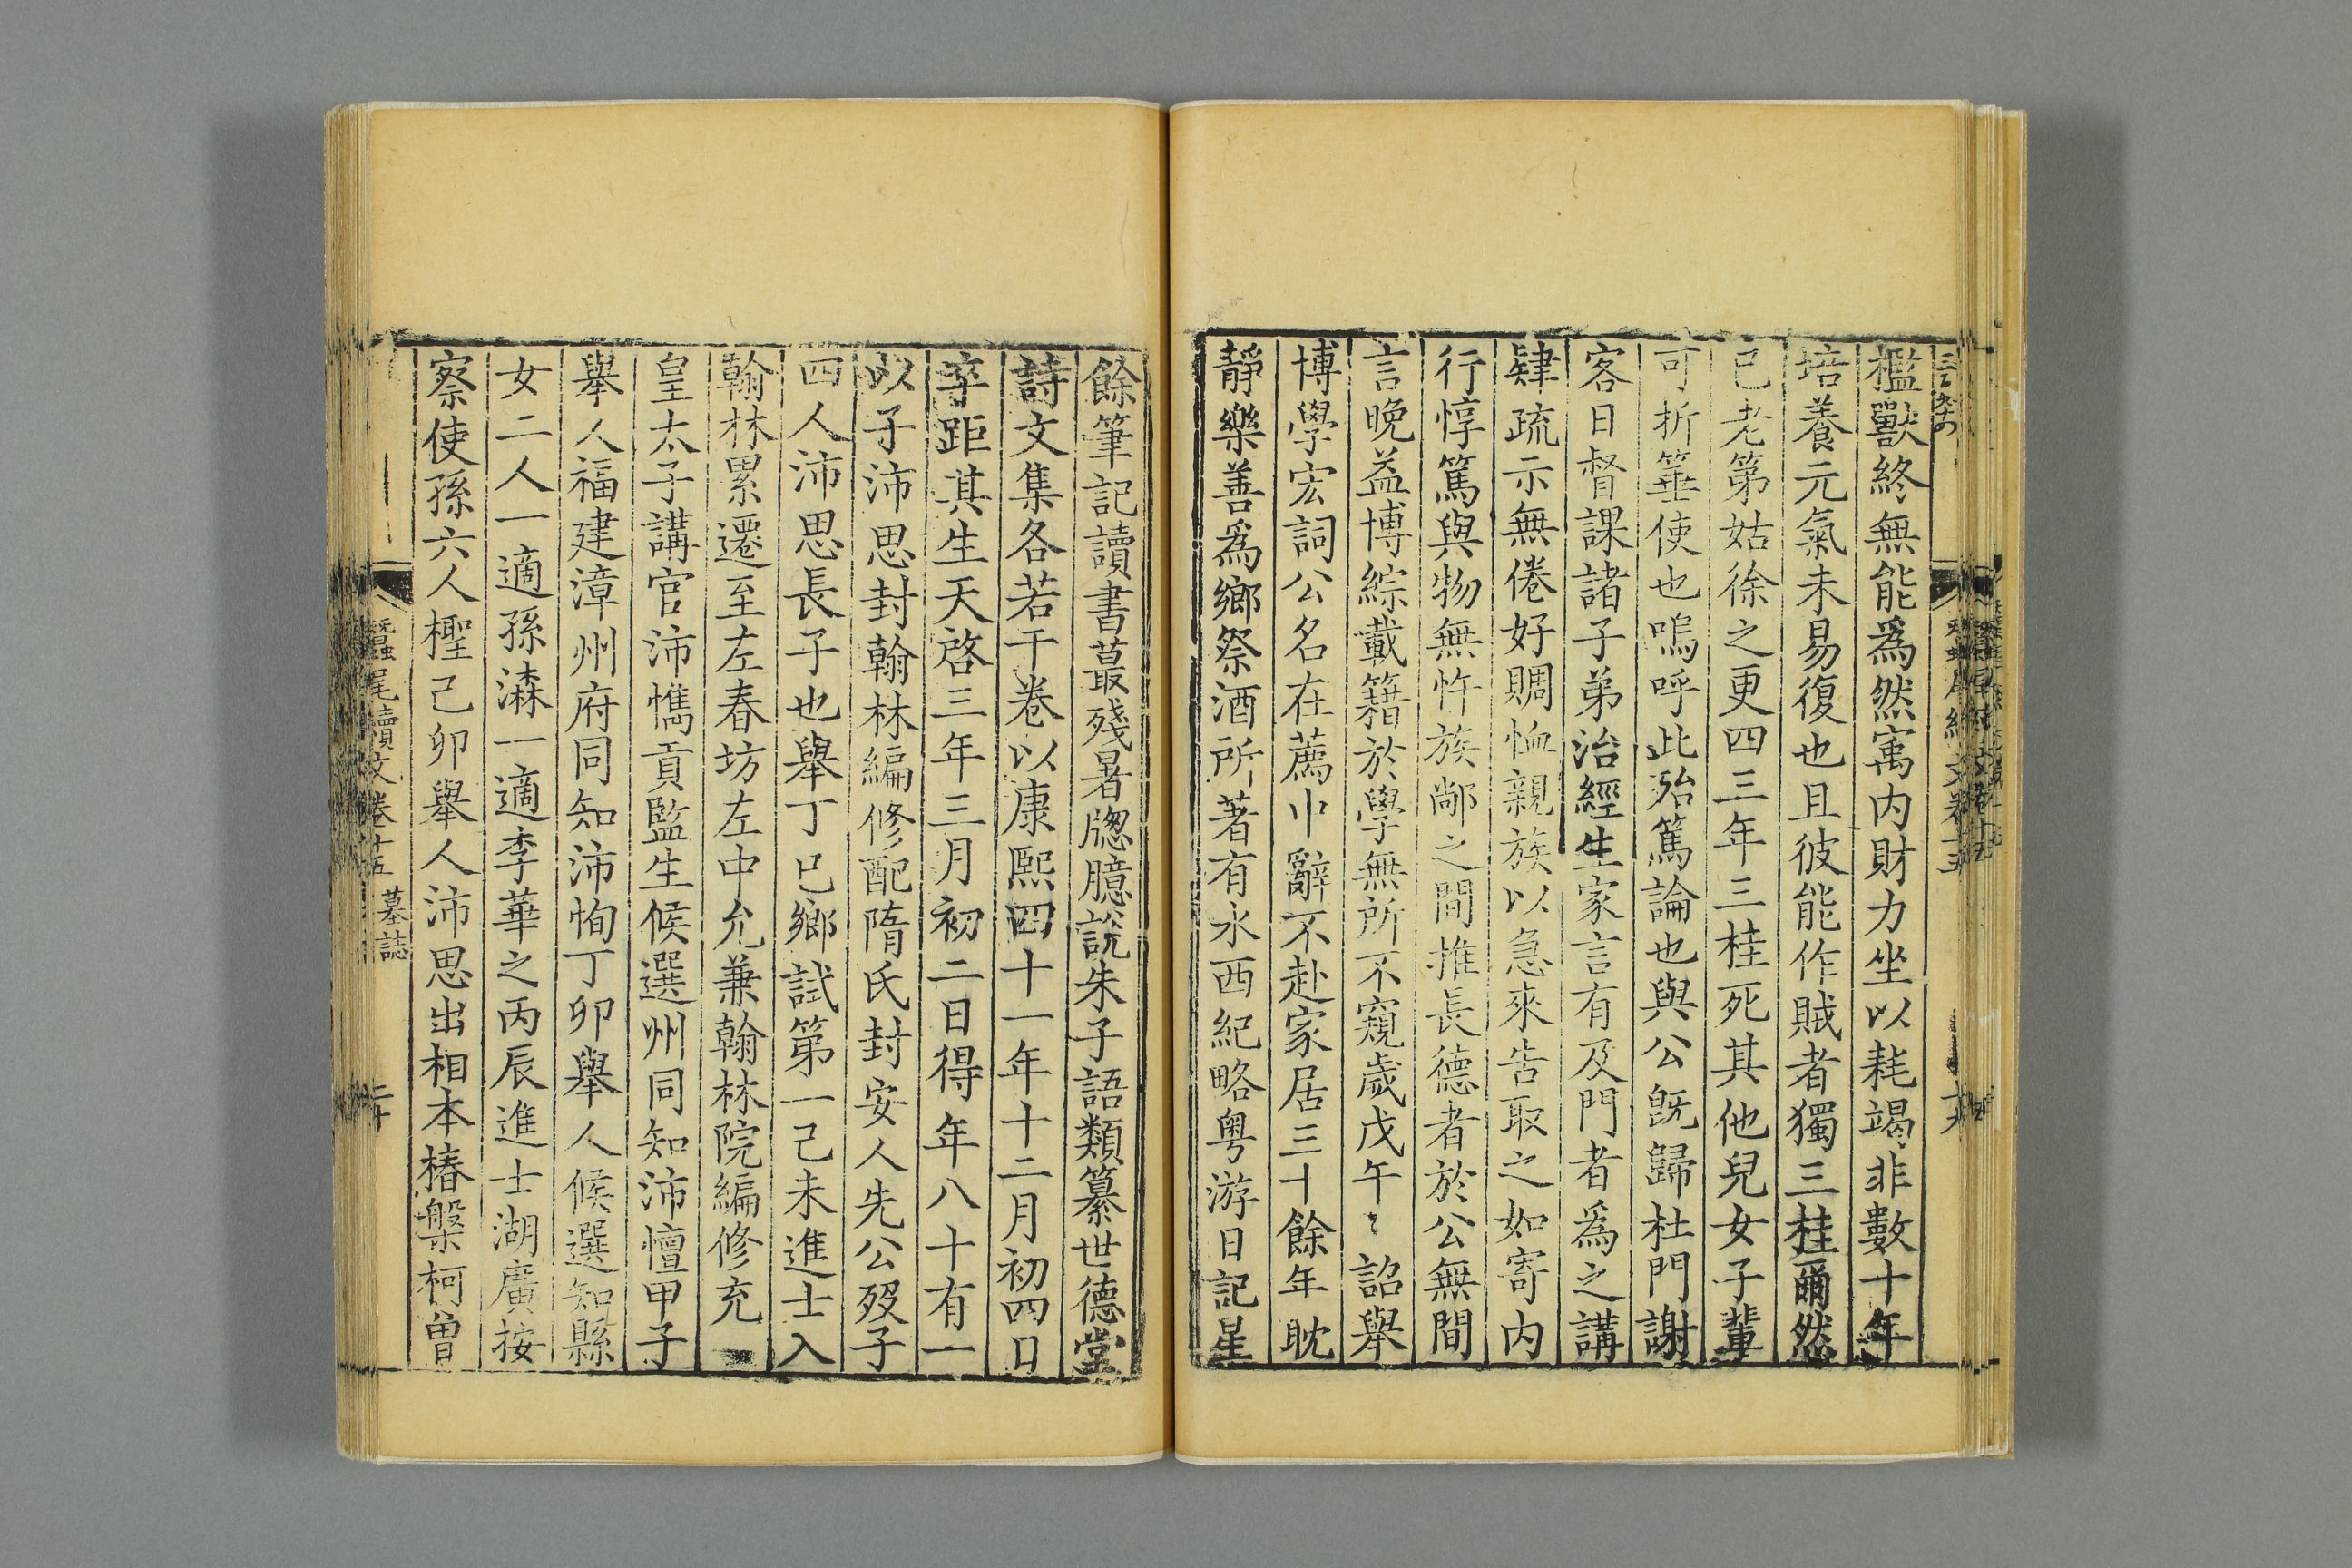 檻獸終無能爲然寓内財力坐以耗竭非數十年
培養元氣未易復也且彼能作賊者獨三桂爾然
已老第姑徐之更四三年三桂死其他兒女子輩
可折箠使也嗚呼此殆篤論也與公旣歸杜門謝
客日督課諸子弟治經生家言有及門者爲之講
肄疏示無倦好賙恤親族以急來告取之如寄内
行惇篤與物無忤族鄰之間推長德者於公無間
言晩益博綜載籍於學無所不窺歲戊午詔舉
博學宏詞公名在薦中辭不赴家居三十餘年耽
靜樂善爲鄉祭酒所著有水西紀略粤游日記星
餘筆記讀書蕞殘暑牕臆說朱子語類纂世德堂
詩文集各若干卷以康熙四十一年十二月初四日
卒距其生天啓三年三月初二日得年八十有一
以子沛思封翰林編修配隋氏封安人先公歿子
四人沛思長子也舉丁巳鄉試第一己未進士入
翰林累遷至左春坊左中允兼翰林院編修充
皇太子講官沛㦿貢監生候選州同知沛憻甲子
舉人福建漳州府同知沛恂丁卯舉人候選知縣
女二人一適孫潹一適李華之丙辰進士湖廣按
察使孫六人檉己卯舉人沛思出相本椿槃柯曾
蠶尾續文卷十五 墓誌 二十